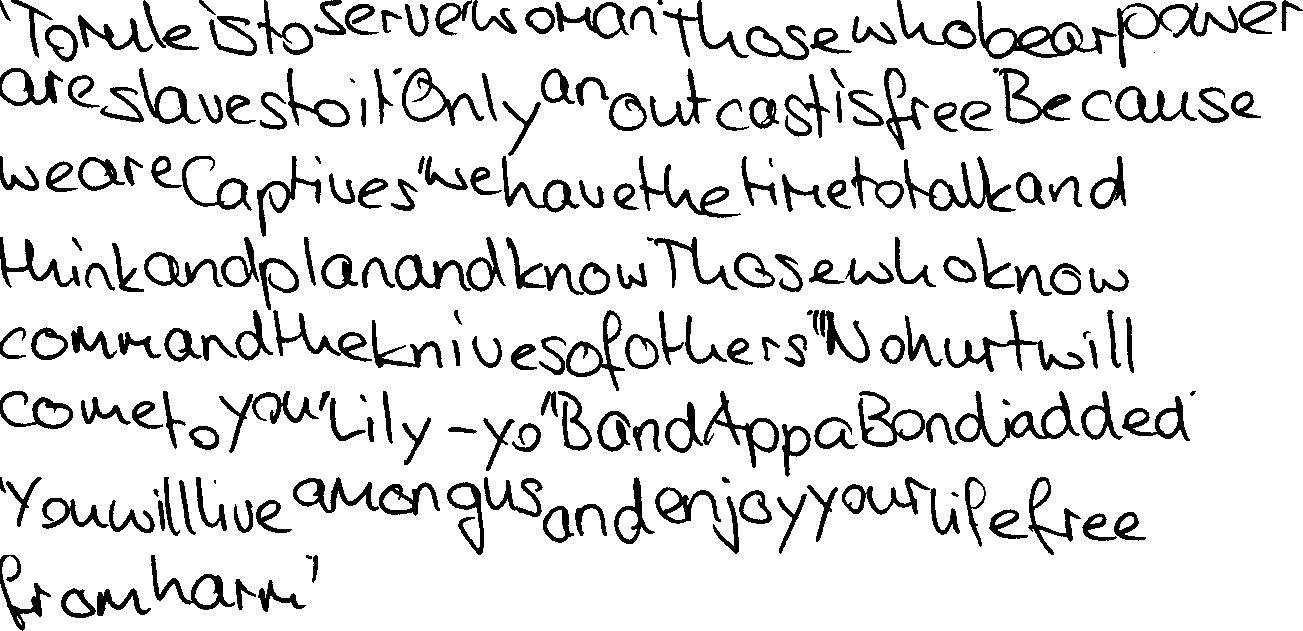 'To rule is to serve, woman. Those who bear power
are slaves to it. Only an outcast is free. Because
we are Captives, we have the time to talk and
think and plan and know. Those who know
command the knives of others." "No hurt will
come to you, Lily-yo," Band Appa Bondi added.
'You will live among us and enjoy your life free
from harm.'